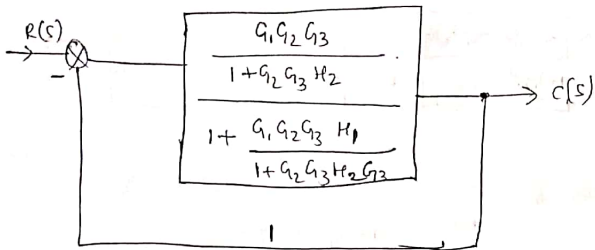 R(s)
G₁G₂G₃
1+G₂G₃H₂
1+ G₁G₂G₃ H₁
1+G₂G₃H₂G₃
C(s)
-
1